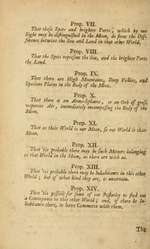 Prop. VII.
That those Spots and brighter Parts, which by our
Sight may be distinguished in the Moon, do shew the Diff-
erence between the Sea and Land in that other World.
Prop. VIII.
That the Spots represent the Sea, and the brighter Parts
the Land.
Prop. IX.
That there are High Mountains, Deep Vallies, and
Spacious Plains in the Body of the Moon.
Prop. X.
That there is an Atmosphæra, or an Orb of gross
vaporous Air, immediately encompassing the Body of the
Moon.
Prop. XI.
That as their World is our Moon, so our World is their
Moon.
Prop. XII.
That 'tis probable there may be such Meteors belonging
to that World in the Moon, as there are with us.
Prop. XIII.
That 'tis probable there may be Inhabitants in this other
World; but of what kind they are, is uncertain.
Prop. XIV.
That 'tis possible for some of our Posterity to find out
a Conveyance to this other World; and, if there be In-
habitants there, to have Commerce with them.
The